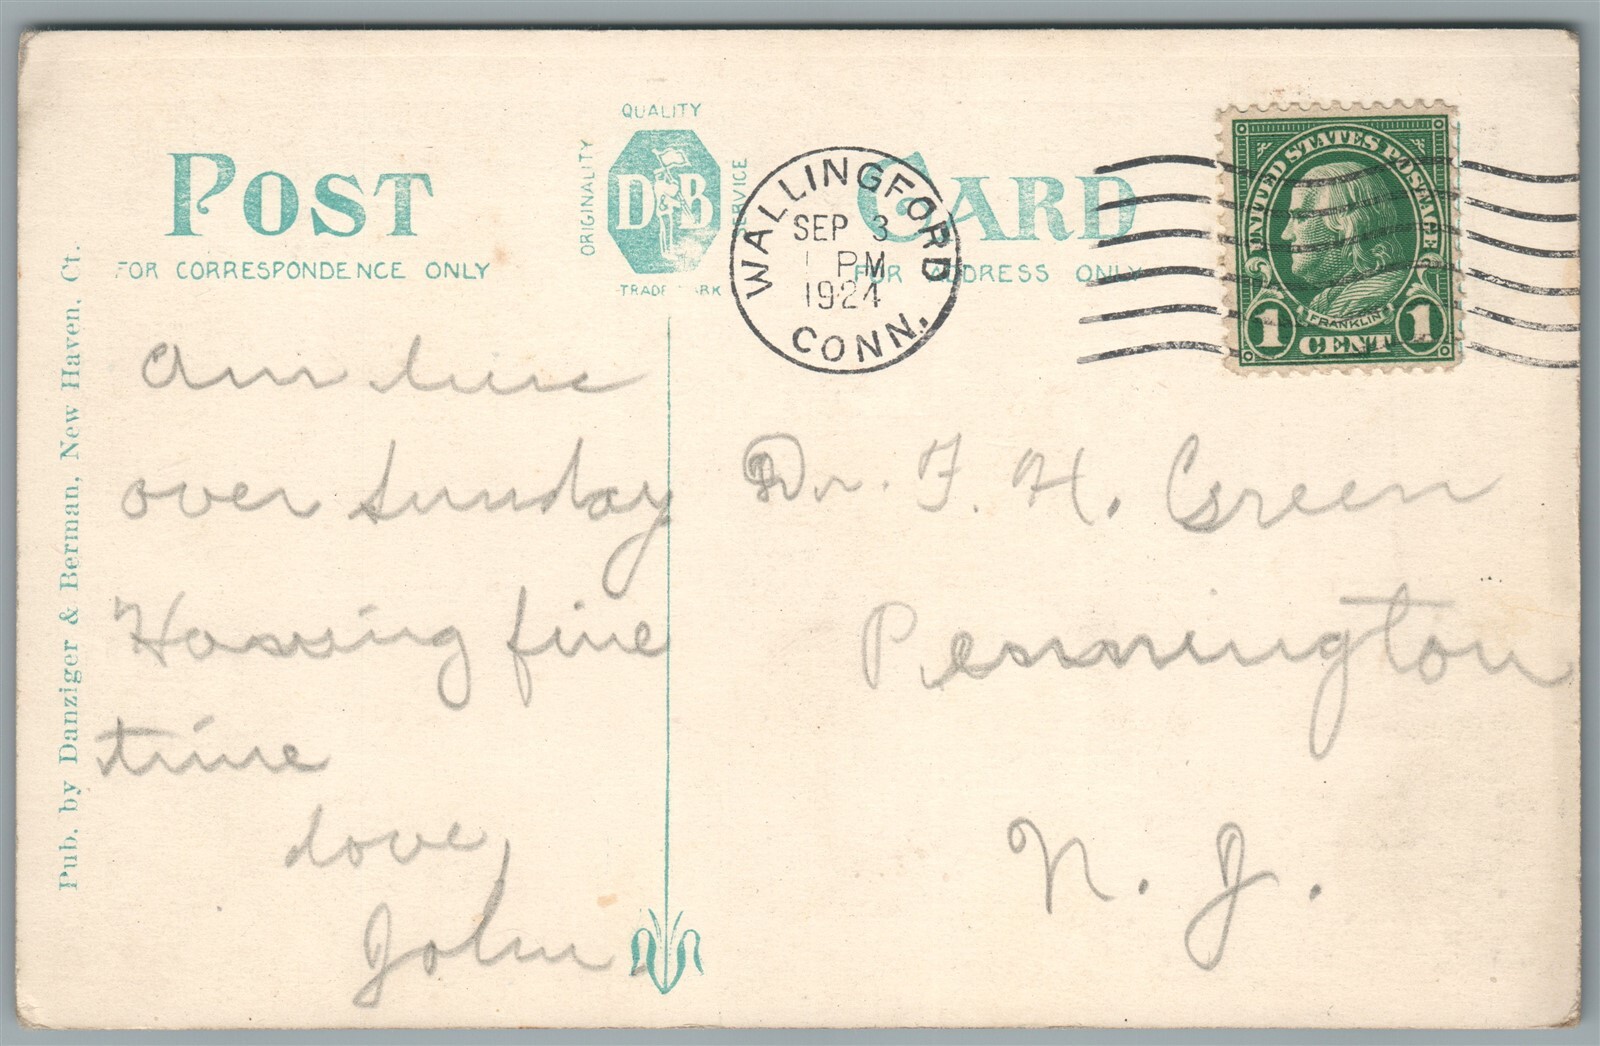 QUALITY
ORIGINALITY
D&B
SERVICE
TRADE MARK
POST CARD
FOR CORRESPONDENCE ONLY
FOR ADDRESS ONLY
WALLINGFORD
SEP 3
1 PM
1924
CONN.
UNITED STATES POSTAGE
FRANKLIN
1 CENT 1
Pub. by Danziger & Berman, New Haven, Ct.
Am here
over Sunday
Having fine
time
Love,
John.
Dr. F. H. Green
Pennington
N. J.